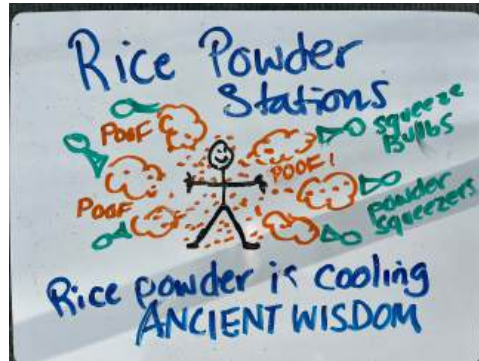 Rice Powder
Stations
POOF
squeeze
Bulbs
POOF!
POOF
powder
squeezers
Rice powder is cooling
ANCIENT WISDOM